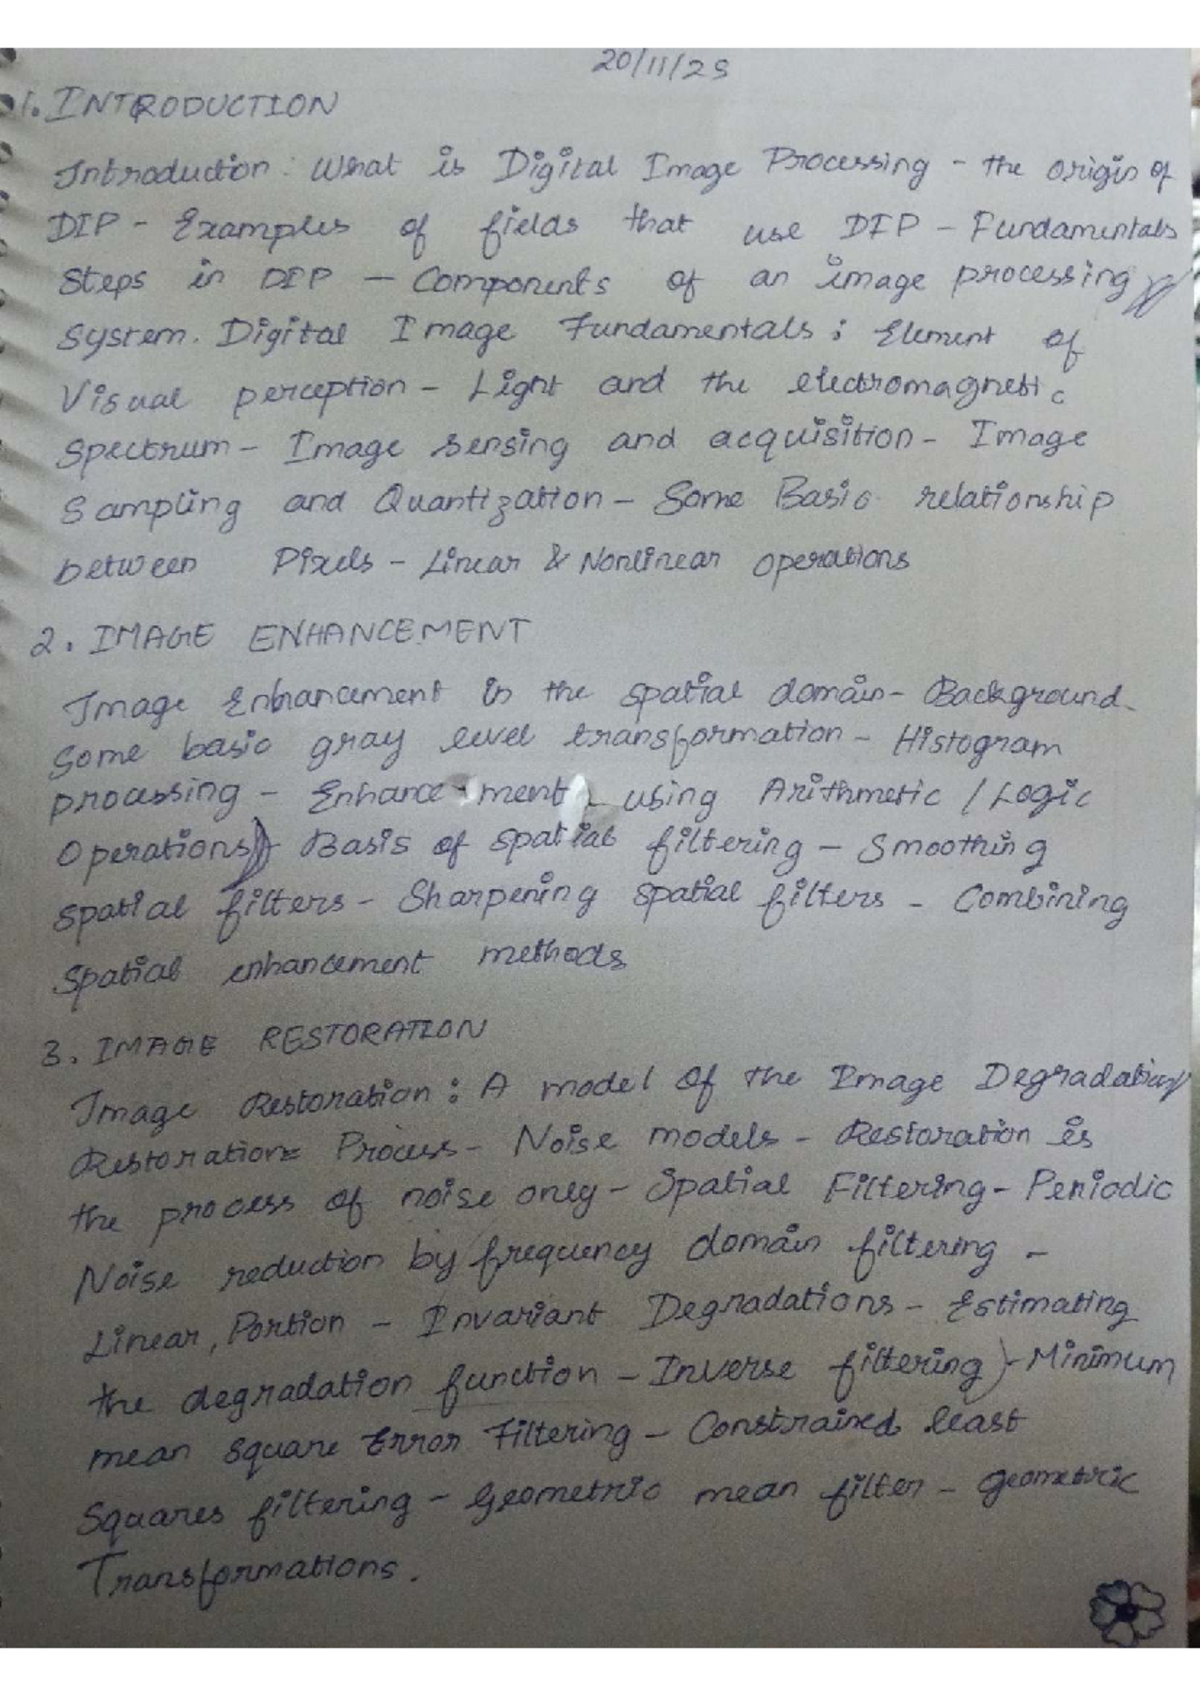 20/11/25
1. INTRODUCTION
Introduction: What is Digital Image Processing - the origin of
DIP - Examples of fields that use DIP - Fundamentals
Steps in DIP - Components of an image processing
System. Digital Image Fundamentals: Element of
Visual perception - Light and the electromagnetic
Spectrum - Image sensing and acquisition - Image
Sampling and Quantization - Some Basic relationship
between Pixels - Linear & Nonlinear operations
2. IMAGE ENHANCEMENT
Image Enhancement in the spatial domain - Background
Some basic gray level transformation - Histogram
processing - Enhancement using Arithmetic / Logic
Operations - Basis of spatial filtering - Smoothing
spatial filters - Sharpening spatial filters - Combining
Spatial enhancement methods
3. IMAGE RESTORATION
Image Restoration: A model of the Image Degradation
Restoration Process - Noise models - Restoration is
the process of noise only - Spatial Filtering - Periodic
Noise reduction by frequency domain filtering -
Linear, Portion - Invariant Degradations - Estimating
the degradation function - Inverse filtering - Minimum
mean square Error Filtering - Constrained least
Squares filtering - Geometric mean filter - geometric
Transformations.